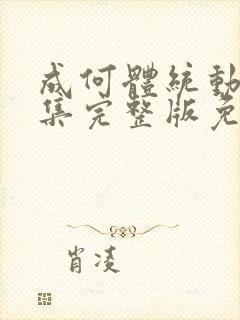 成何體統動
集完整版免
肖凌